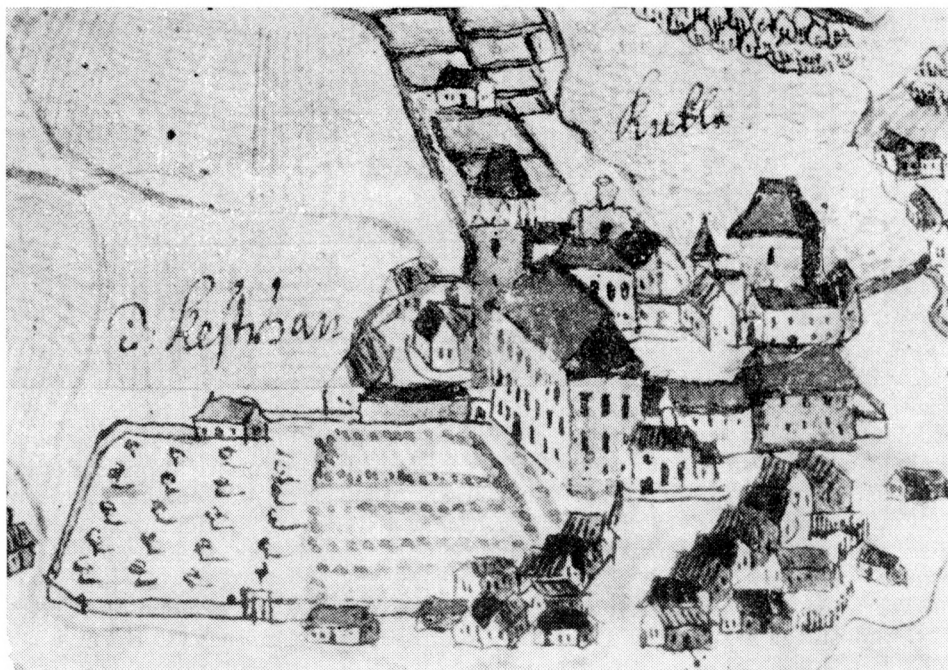 Kukla
D: Keſtrsan